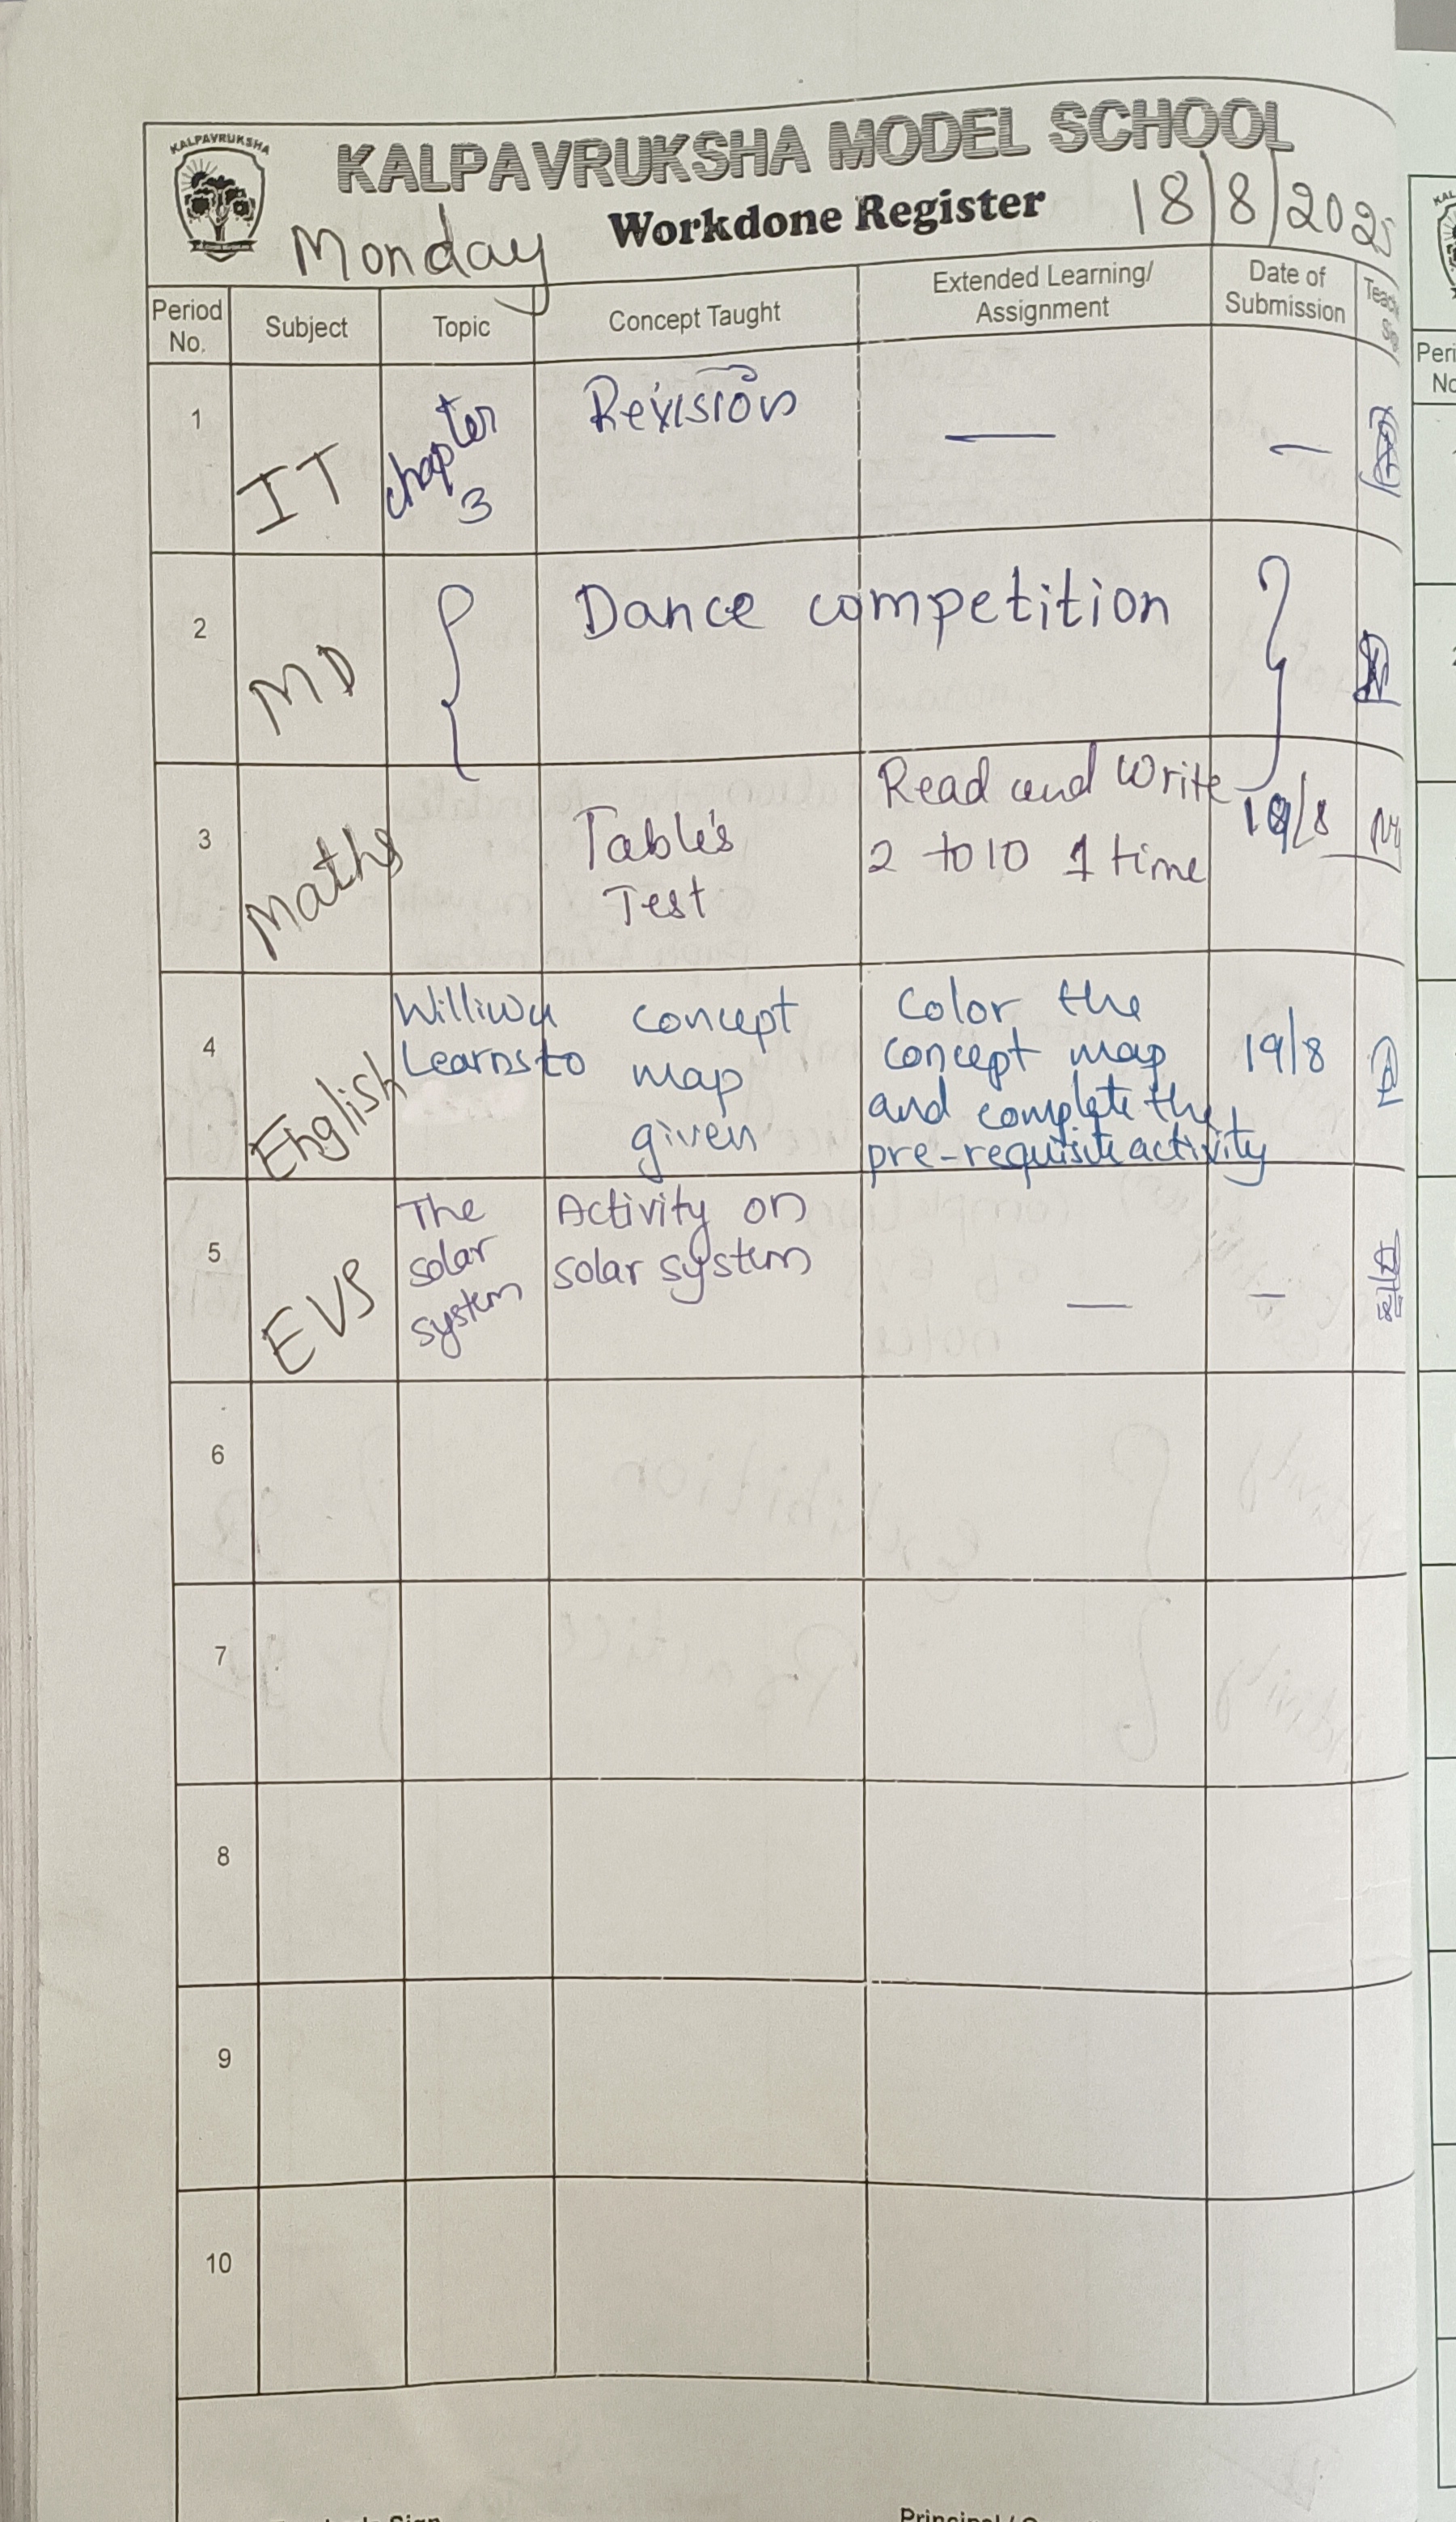 KALPAVRUKSHA
KALPAVRUKSHA MODEL SCHOOL
Workdone Register
Monday
18/8/2025
Period No.
Subject
Topic
Concept Taught
Extended Learning/
Assignment
Date of
Submission
1
IT
chapter
3
Revision
—
—
2
MD
Dance competition
3
Maths
Table's
Test
Read and Write
2 to 10 1 time
19/8
4
English
Learns to
concept
map
given
Color the
concept map
and complete the
pre-requisite activity
19/8
5
EVS
The
solar
system
Activity on
solar system
—
—
6
7
8
9
10